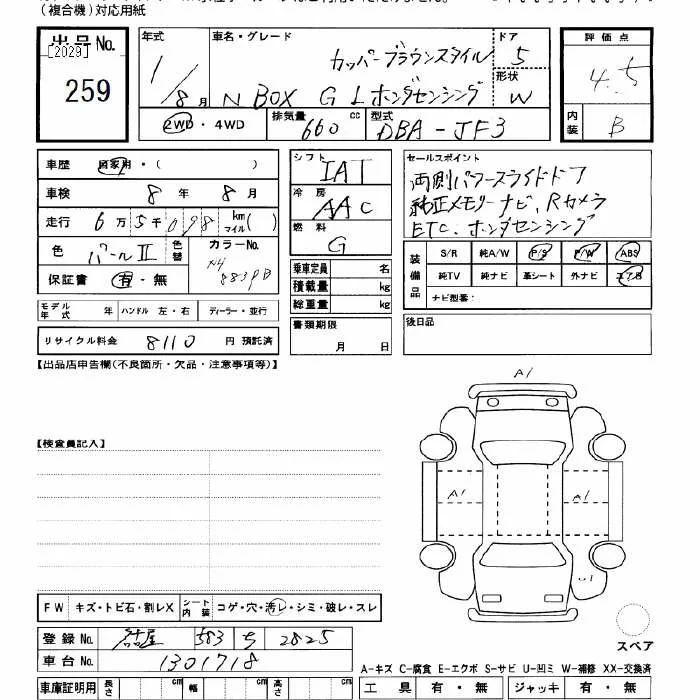 (複合機)対応用紙
出品No.
[2029]
259
年式
1/8月
車名・グレード
カッパーブラウンスタイル
N BOX G L ホンダセンシング
ドア
5
形状
W
評価点
4.5
内装
B
2WD・4WD
排気量 660 cc
型式 DBA-JF3
車歴 自家用・( )
車検 8年 8月
走行 6万5千098 km マイル( )
色 パールII 色替
カラーNo. NH 883PB
保証書 有・無
モデル年式 年 ハンドル 左・右 ディーラー・並行
リサイクル料金 8110 円 預託済
シフト IAT
冷房 AAC
燃料 G
乗車定員 名
積載量 kg
総重量 kg
書類期限
月 日
セールスポイント
両側パワースライドドア
純正メモリーナビ、Rカメラ
ETC、ホンダセンシング
装備品
S/R 純A/W P/S P/W ABS
純TV 純ナビ 革シート 外ナビ エアB
ナビ型番:
後日品
【出品店申告欄(不良箇所・欠品・注意事項等)】
【検査員記入】
A1
A1
A1
U1
スペア
FW キズ・トビ石・割レX シート内装 コゲ・穴・汚レ・シミ・破レ・スレ
登録No. 名古屋 583 ち 2825
車台No. 1301718
車庫証明用 長さ cm 幅 cm 高さ cm
A-キズ C-腐食 E-エクボ S-サビ U-凹ミ W-補修 XX-交換済
工具 有・無 ジャッキ 有・無